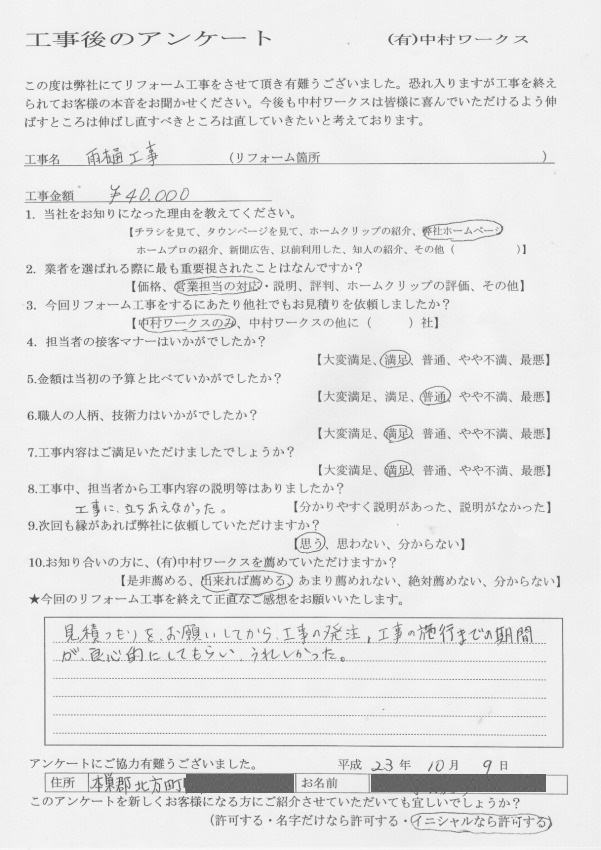 工事後のアンケート (有)中村ワークス
この度は弊社にてリフォーム工事をさせて頂き有難うございました。恐れ入りますが工事を終え
られてお客様の本音をお聞かせください。今後も中村ワークスは皆様に喜んでいただけるよう伸
ばすところは伸ばし直すべきところは直していきたいと考えております。
工事名 雨樋工事 (リフォーム箇所 )
工事金額 ¥40.000
1. 当社をお知りになった理由を教えてください。
【チラシを見て、タウンページを見て、ホームクリップの紹介、弊社ホームページ
ホームプロの紹介、新聞広告、以前利用した、知人の紹介、その他（ )】
2. 業者を選ばれる際に最も重要視されたことはなんですか？
【価格、営業担当の対応・説明、評判、ホームクリップの評価、その他】
3. 今回リフォーム工事をするにあたり他社でもお見積りを依頼しましたか？
【中村ワークスのみ、中村ワークスの他に（ ）社】
4. 担当者の接客マナーはいかがでしたか？
【大変満足、満足、普通、やや不満、最悪】
5.金額は当初の予算と比べていかがでしたか？
【大変満足、満足、普通、やや不満、最悪】
6.職人の人柄、技術力はいかがでしたか？
【大変満足、満足、普通、やや不満、最悪】
7.工事内容はご満足いただけましたでしょうか？
【大変満足、満足、普通、やや不満、最悪】
8.工事中、担当者から工事内容の説明等はありましたか？
工事に、立ちあえなかった。 【分かりやすく説明があった、説明がなかった】
9.次回も縁があれば弊社に依頼していただけますか？
【思う、思わない、分からない】
10.お知り合いの方に、(有)中村ワークスを薦めていただけますか？
【是非薦める、出来れば薦める、あまり薦めれない、絶対薦めない、分からない】
★今回のリフォーム工事を終えて正直なご感想をお願いいたします。
見積つもりを、お願いしてから、工事の発注、工事の施行までの期間
が、良心的にしてもらい、うれしかった。
アンケートにご協力有難うございました。 平成 23年 10月 9日
住所 本巣郡北方町 お名前
このアンケートを新しくお客様になる方にご紹介させていただいても宜しいでしょうか？
(許可する・名字だけなら許可する・イニシャルなら許可する)